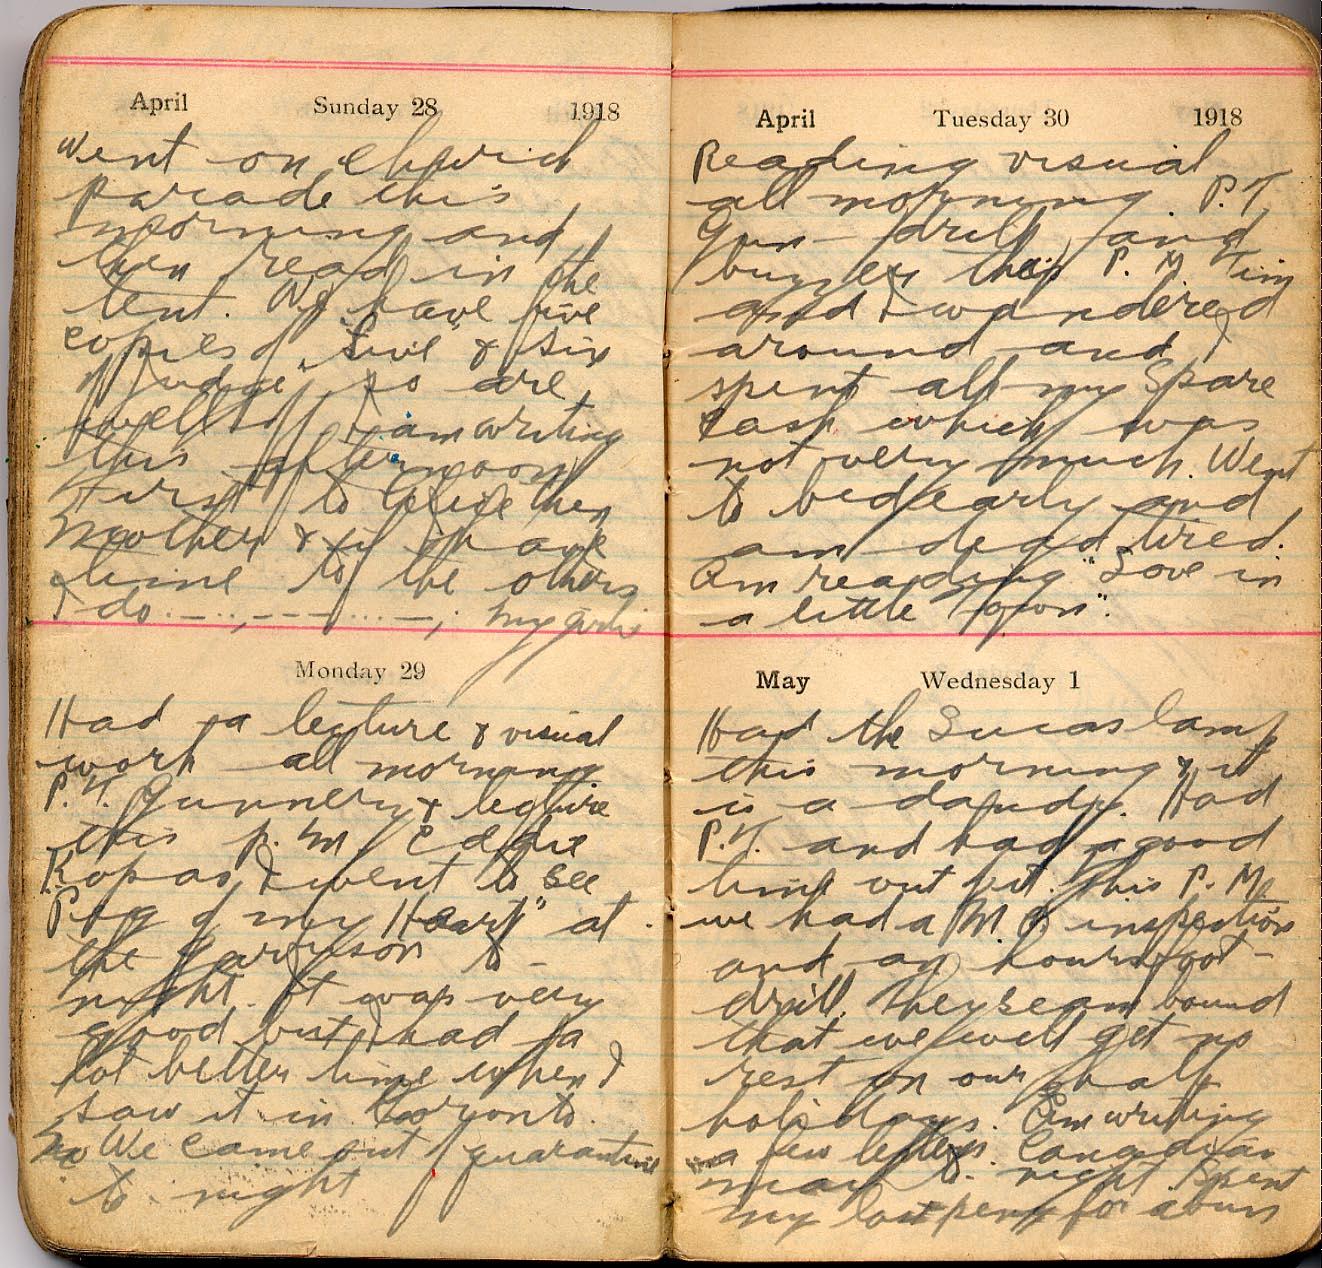 April Sunday 28 1918
Went on Church
parade this
morning and
then read in the
tent. We have five
copies of "Live" & six
of "Judge" so are
well off. I am writing
this afternoon
first to
Mother & if I have
time to the others
I do .. — . . , — — — . . . — , my girlie
Monday 29
Had a lecture & visual
work all morning
P.T. Gunnery & lecture
this p.m. Eddie
Kopas & I went to see
Peg of my Heart" at
the Garrison to-
night. It was very
good but I had a
lot better time when I
saw it in Toronto.
We came out of quarantine
to night
April Tuesday 30 1918
Reading visual
all morning. P.T.
Gun-drill and
buzzer this P.M. Tim
and I wandered
around and I
spent all my Spare
Cash which was
not very much. Went
to bed early and
am dead tired.
Am reading "Love in
a little Town".
May Wednesday 1
Had the Lucas lamp
this morning & it
is a dandy. Had
P.T. and had a good
time out of it. This P.M.
we had a M.O. inspection
and an hours foot-
drill. They seam bound
that we will get no
rest on our half
holidays. Am writing
a few letters. Canadian
mail to night. Spent
my last penny for a bun